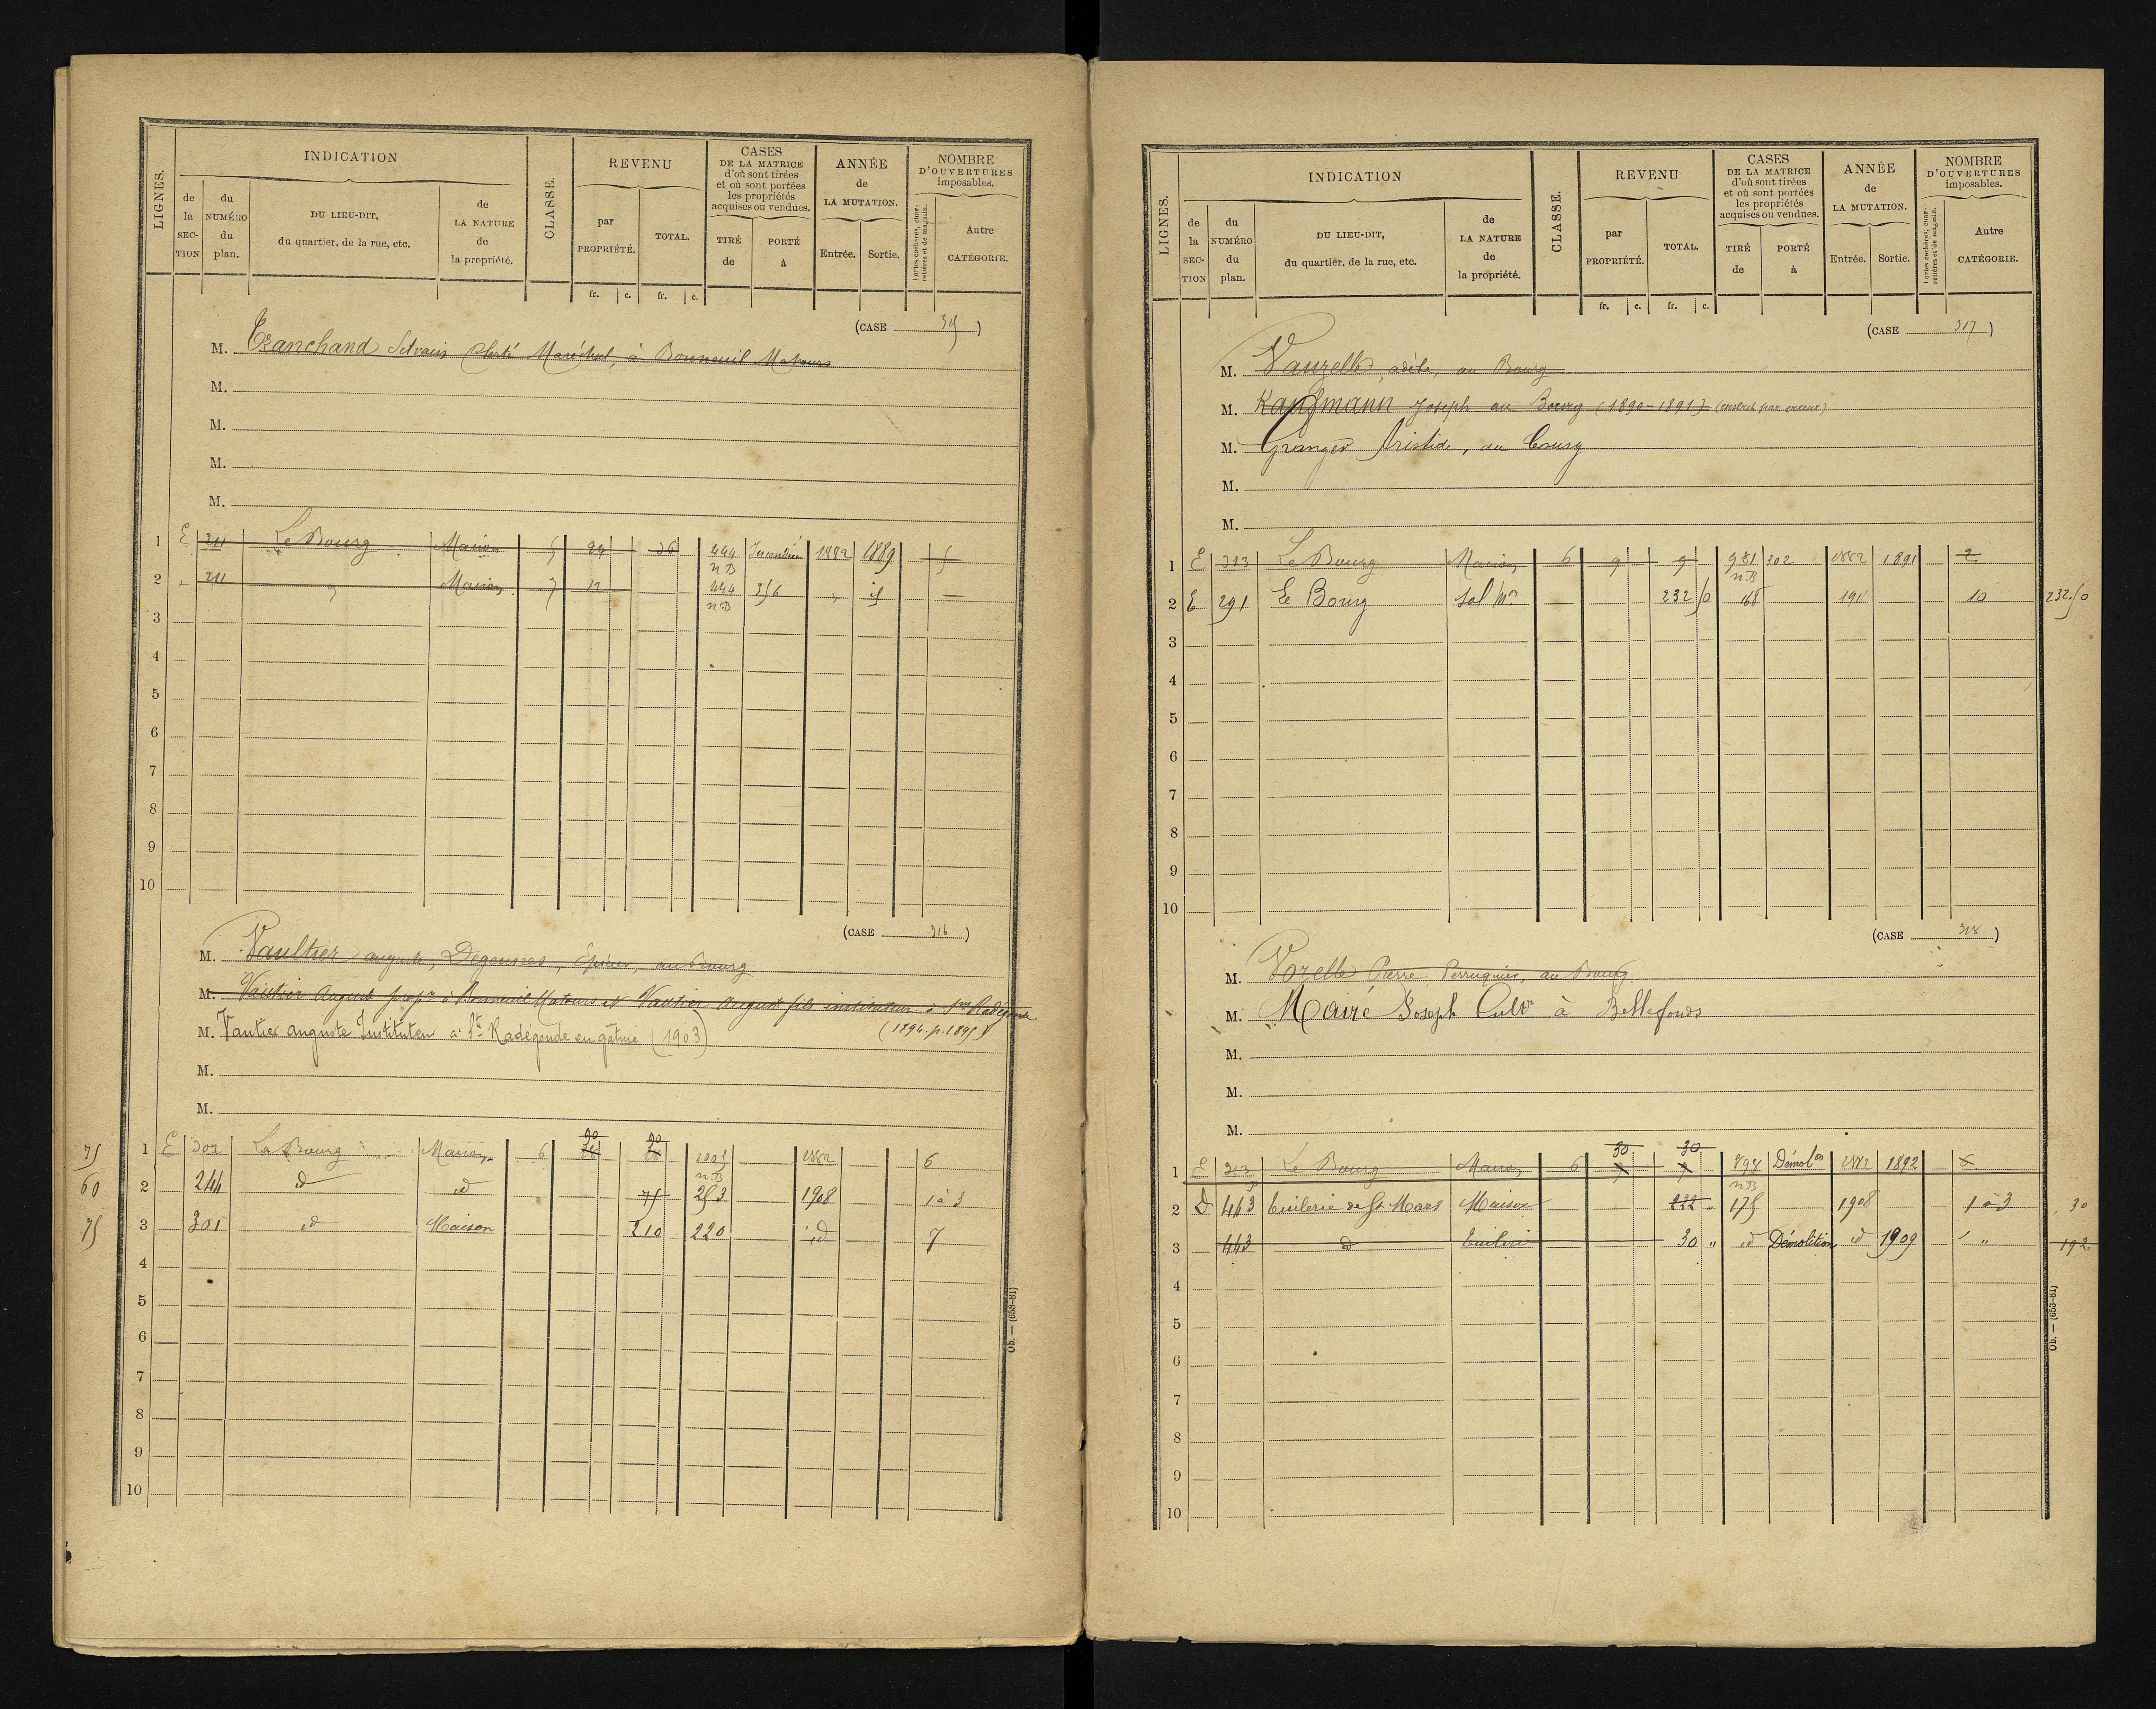 LIGNES.
INDICATION
de la SECTION
du NUMÉRO du plan.
DU LIEU-DIT, du quartier, de la rue, etc.
de LA NATURE de la propriété.
CLASSE.
REVENU
par PROPRIÉTÉ.
TOTAL.
fr. c. fr. c.
CASES DE LA MATRICE d'où sont tirées et où sont portées les propriétés acquises ou vendues.
TIRÉ de
PORTÉ à
ANNÉE de LA MUTATION.
Entrée. Sortie.
NOMBRE D'OUVERTURES imposables.
Portes cochères, charretières et de magasin.
Autre CATÉGORIE.
(CASE 315)
M. Tranchand Silvain Maréchal, à Bonneuil Matours
M.
M.
M.
M.
1 E 211 Le Bourg Maison 5 24 36 444 n.B Incendié 1882 1889 5
2 " 211 " Maison 7 12 444 n.B 356 "
3
4
5
6
7
8
9
10
(CASE 316)
M. Vaultier auguste, Degeusses, Épicier, au Bourg
M. Vautier August propre à Bonneuil Matours et Vautier August fils instituteur à Ste Radégonde
(1894. p. 1895)
M. Vautier auguste Instituteur à Ste Radégonde en gâtine (1903)
M.
M.
75 1 E 302 Le Bourg Maison 6 20 20 2005 n.B 1882 6
60 2 244 id id 75 253 1908 1 à 3
75 3 301 id Maison 210 220 id 7
4
5
6
7
8
9
10
Ob. — (653-81)
LIGNES.
INDICATION
de la SECTION
du NUMÉRO du plan.
DU LIEU-DIT, du quartier, de la rue, etc.
de LA NATURE de la propriété.
CLASSE.
REVENU
par PROPRIÉTÉ.
TOTAL.
fr. c. fr. c.
CASES DE LA MATRICE d'où sont tirées et où sont portées les propriétés acquises ou vendues.
TIRÉ de
PORTÉ à
ANNÉE de LA MUTATION.
Entrée. Sortie.
NOMBRE D'OUVERTURES imposables.
Portes cochères, charretières et de magasin.
Autre CATÉGORIE.
(CASE 317)
M. Vauzelle, adèle, au Bourg
M. Kaufmann Joseph au Bourg (1890-1891) (par erreur)
M. Granger Aristide, au bourg
M.
M.
1 E 313 Le Bourg Maison 6 9 9 981 n.B 302 1882 1891 2
2 E 291 Le Bourg Sol Mon 232 50 168 1911 10 232.50
3
4
5
6
7
8
9
10
(CASE 318)
M. Vozelle Pierre Perruquier, au Bourg
M. Mairé Joseph Cultr à Bellefonds
M.
M.
M.
1 E 313 p Le Bourg Maison 6 30 30 898 n.B Démolon 1882 1892
2 D 463 tuilerie de St Mars Maison 222 " 175 1908 1 à 3 30
3 463 id tuilerie 30 " id Démolition id 1909 " 192
4
5
6
7
8
9
10
Ob. — (653-81)